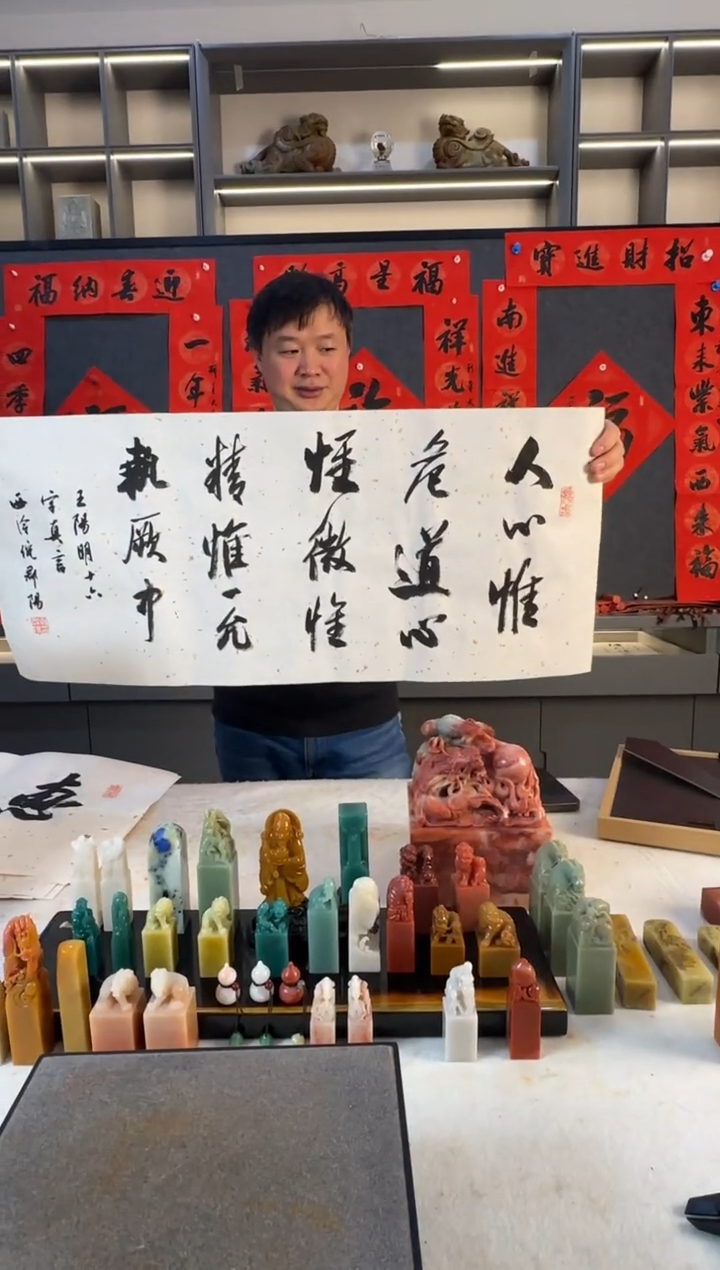 招財進寶
福星高
迎春納福
東来紫氣西来福
南進
祥光
一年
四季
福
人心惟
危道心
惟微惟
精惟一允
執厥中
王陽明十六
字真言
西泠倪
陽